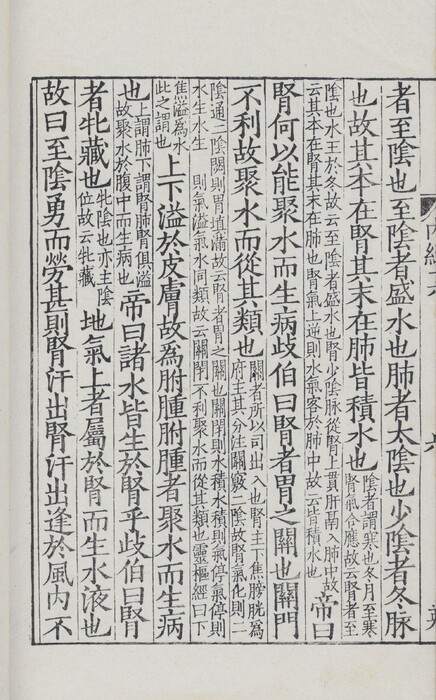 者至陰也至陰者盛水也肺者太陰也少陰者冬脈
也故其本在腎其末在肺皆積水也
陰者謂寒也冬月至寒
腎氣合應故云腎者至
陰也水王於冬故云至陰者盛水也腎少陰脈從腎上貫肝鬲入肺中故
云其本在腎其末在肺也腎氣上逆則水氣客於肺中故云皆積水也
帝曰
腎何以能聚水而生病歧伯曰腎者胃之關也關門
不利故聚水而從其類也
關者所以司出入也腎主下焦膀胱為
府主其分注關竅二陰故腎氣化則二
陰通二陰閟則胃填滿故云腎者胃之關也關閉則水積水積則氣停氣停則
水生水生則氣溢氣水同類故云關閉不利聚水而從其類也靈樞經曰下
焦溢為水
此之謂也
上下溢於皮膚故為胕腫胕腫者聚水而生病
也
上謂肺下謂腎肺腎俱溢
故聚水於腹中而生病也
帝曰諸水皆生於腎乎歧伯曰腎
者牝藏也
牝陰也亦主陰
位故云牝藏
地氣上者屬於腎而生水液也
故曰至陰勇而勞甚則腎汗出腎汗出逢於風內不